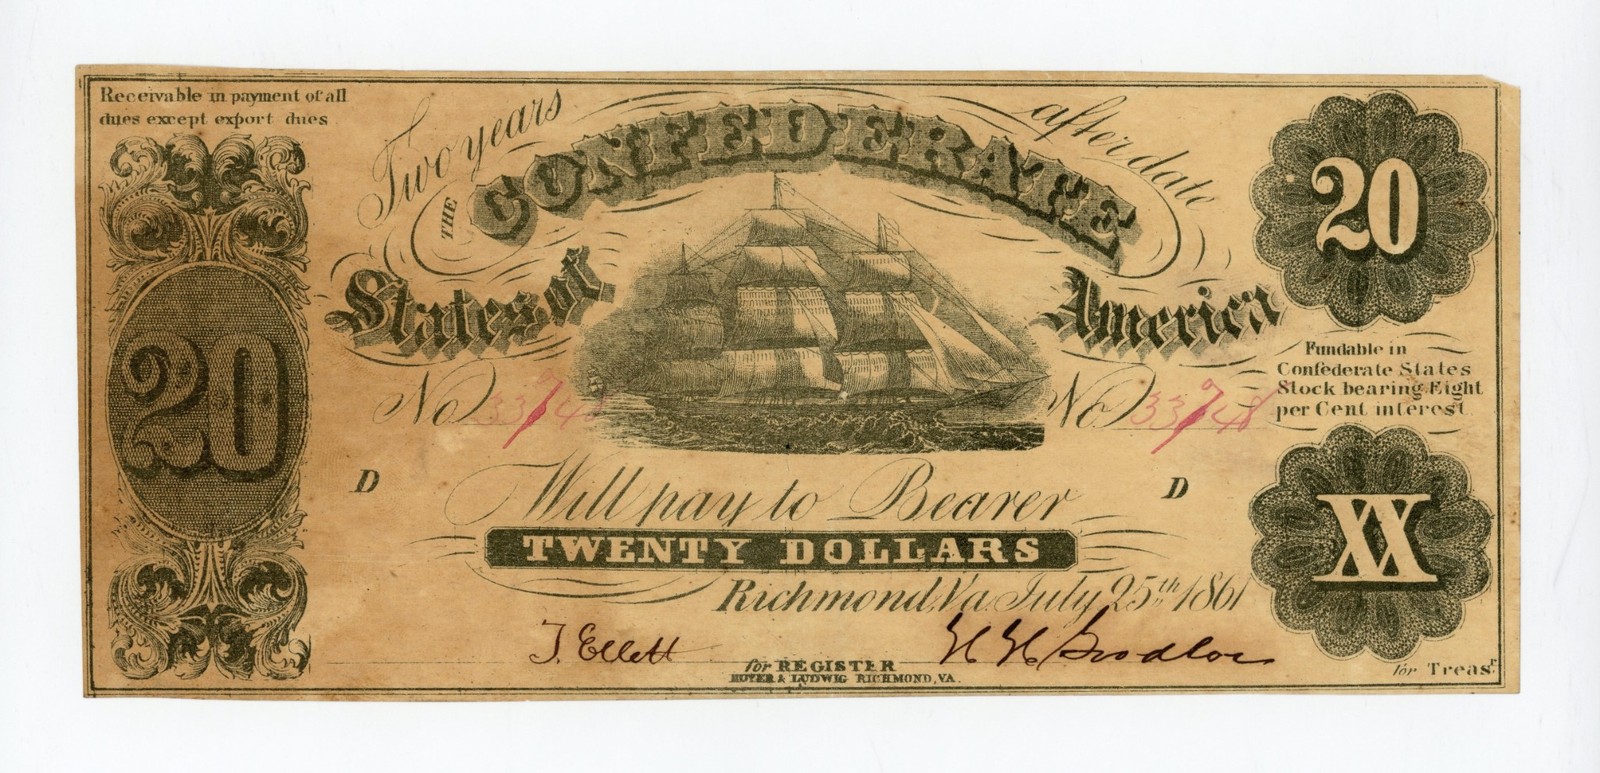 Receivable in payment of all
dues except export dues
Two years after date
THE CONFEDERATE
States of America
20
20
No 33948 No 33948
Fundable in
Confederate States
Stock bearing Eight
per Cent interest
D D
Will pay to Bearer
XX
TWENTY DOLLARS
Richmond, Va. July 25th 1861
T. Ellett
for REGISTER
for Treasr.
HOYER & LUDWIG RICHMOND, VA.